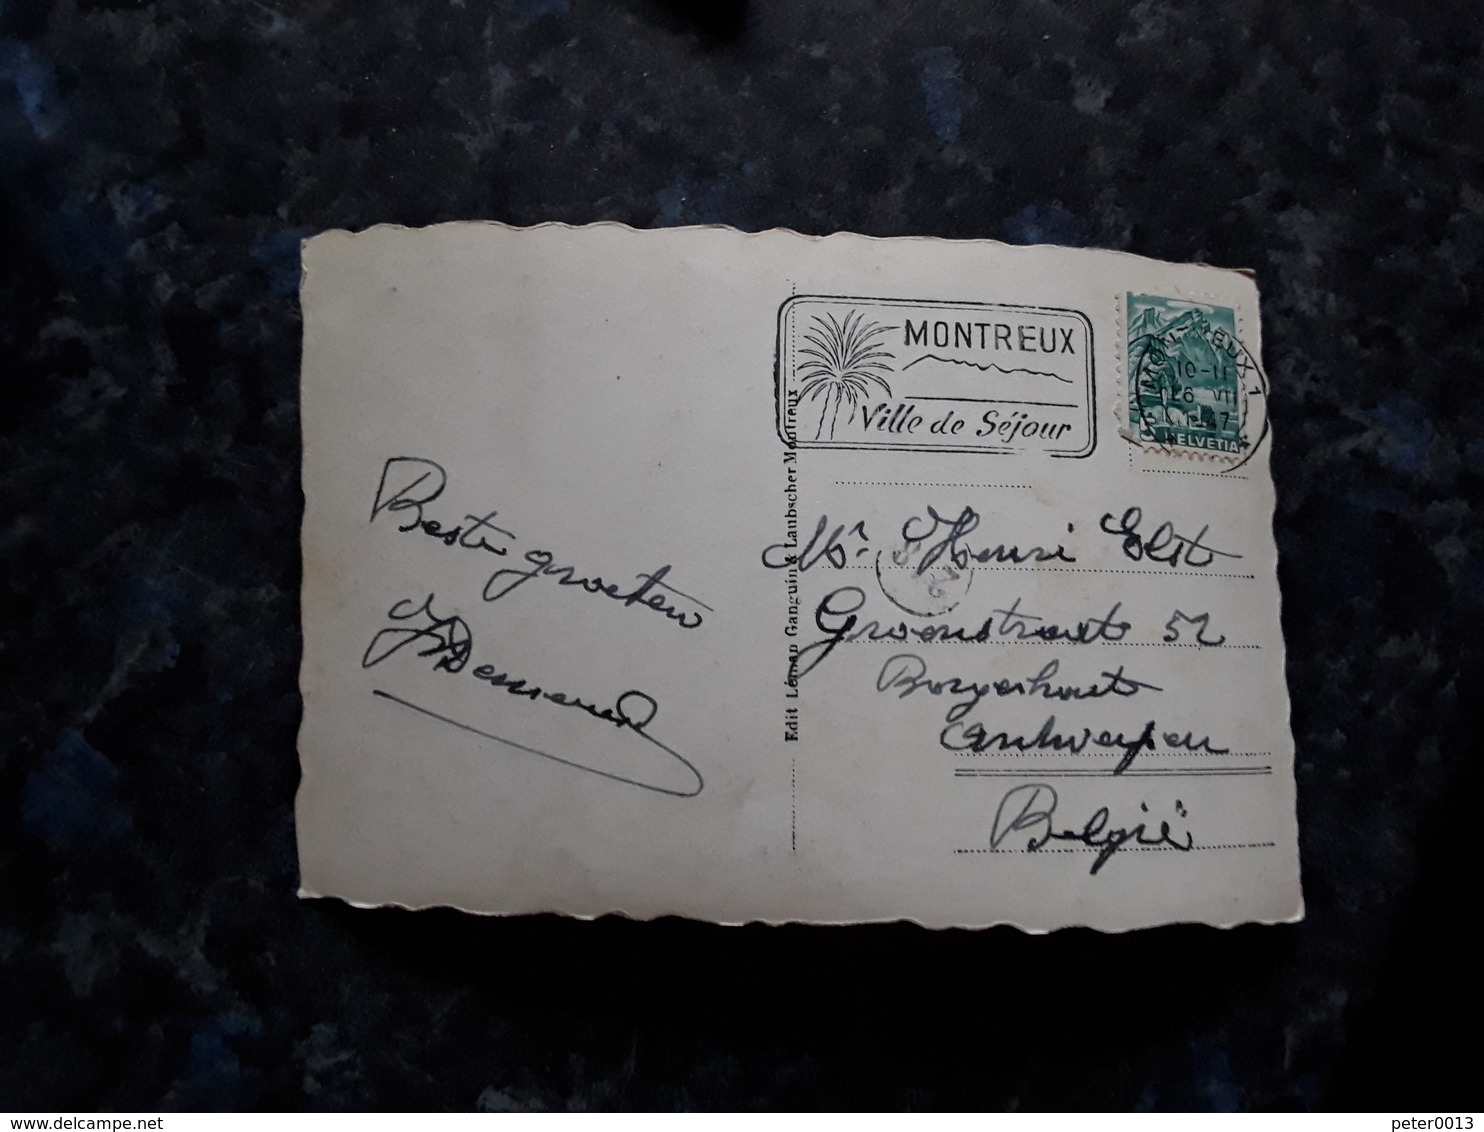 MONTREUX
Ville de Séjour
MONTREUX 1
10-11
VII
47
HELVETIA
Beste groeten
Mr. Henri Elst
Groenstraat 52
Borgerhout
Antwerpen
België
Edit Léman Ganguin & Laubscher Montreux
delcampe.net
peter0013